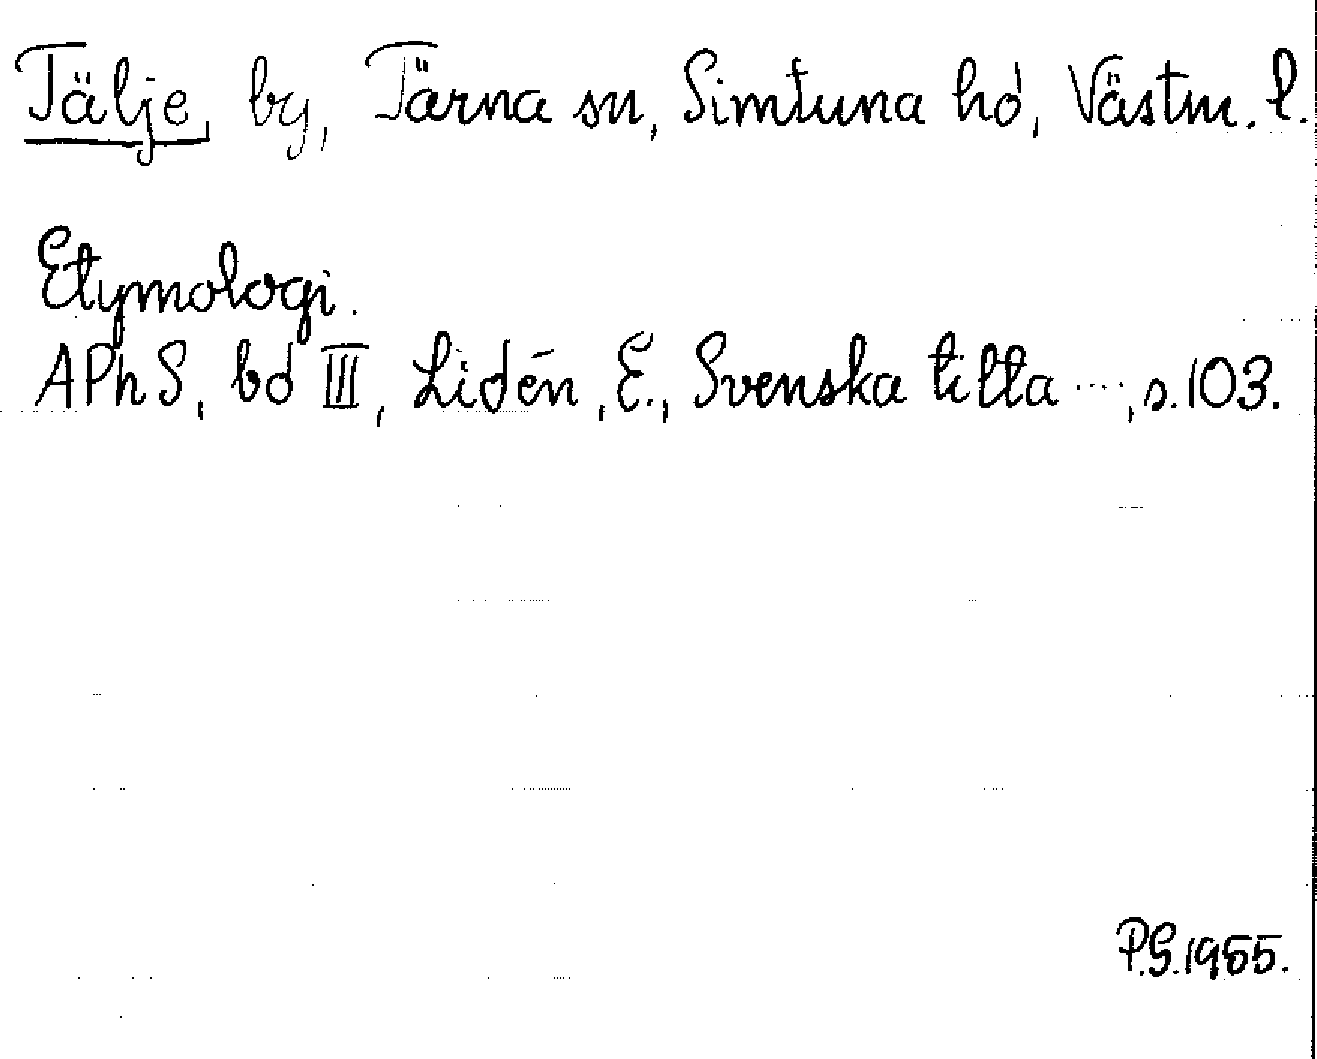 Tälje, by, Tärna sn, Simtuna hd, Västm. l.
Etymologi.
APhS, bd III, Lidén, E., Svenska tilta ..., s. 103.
P.G. 1955.